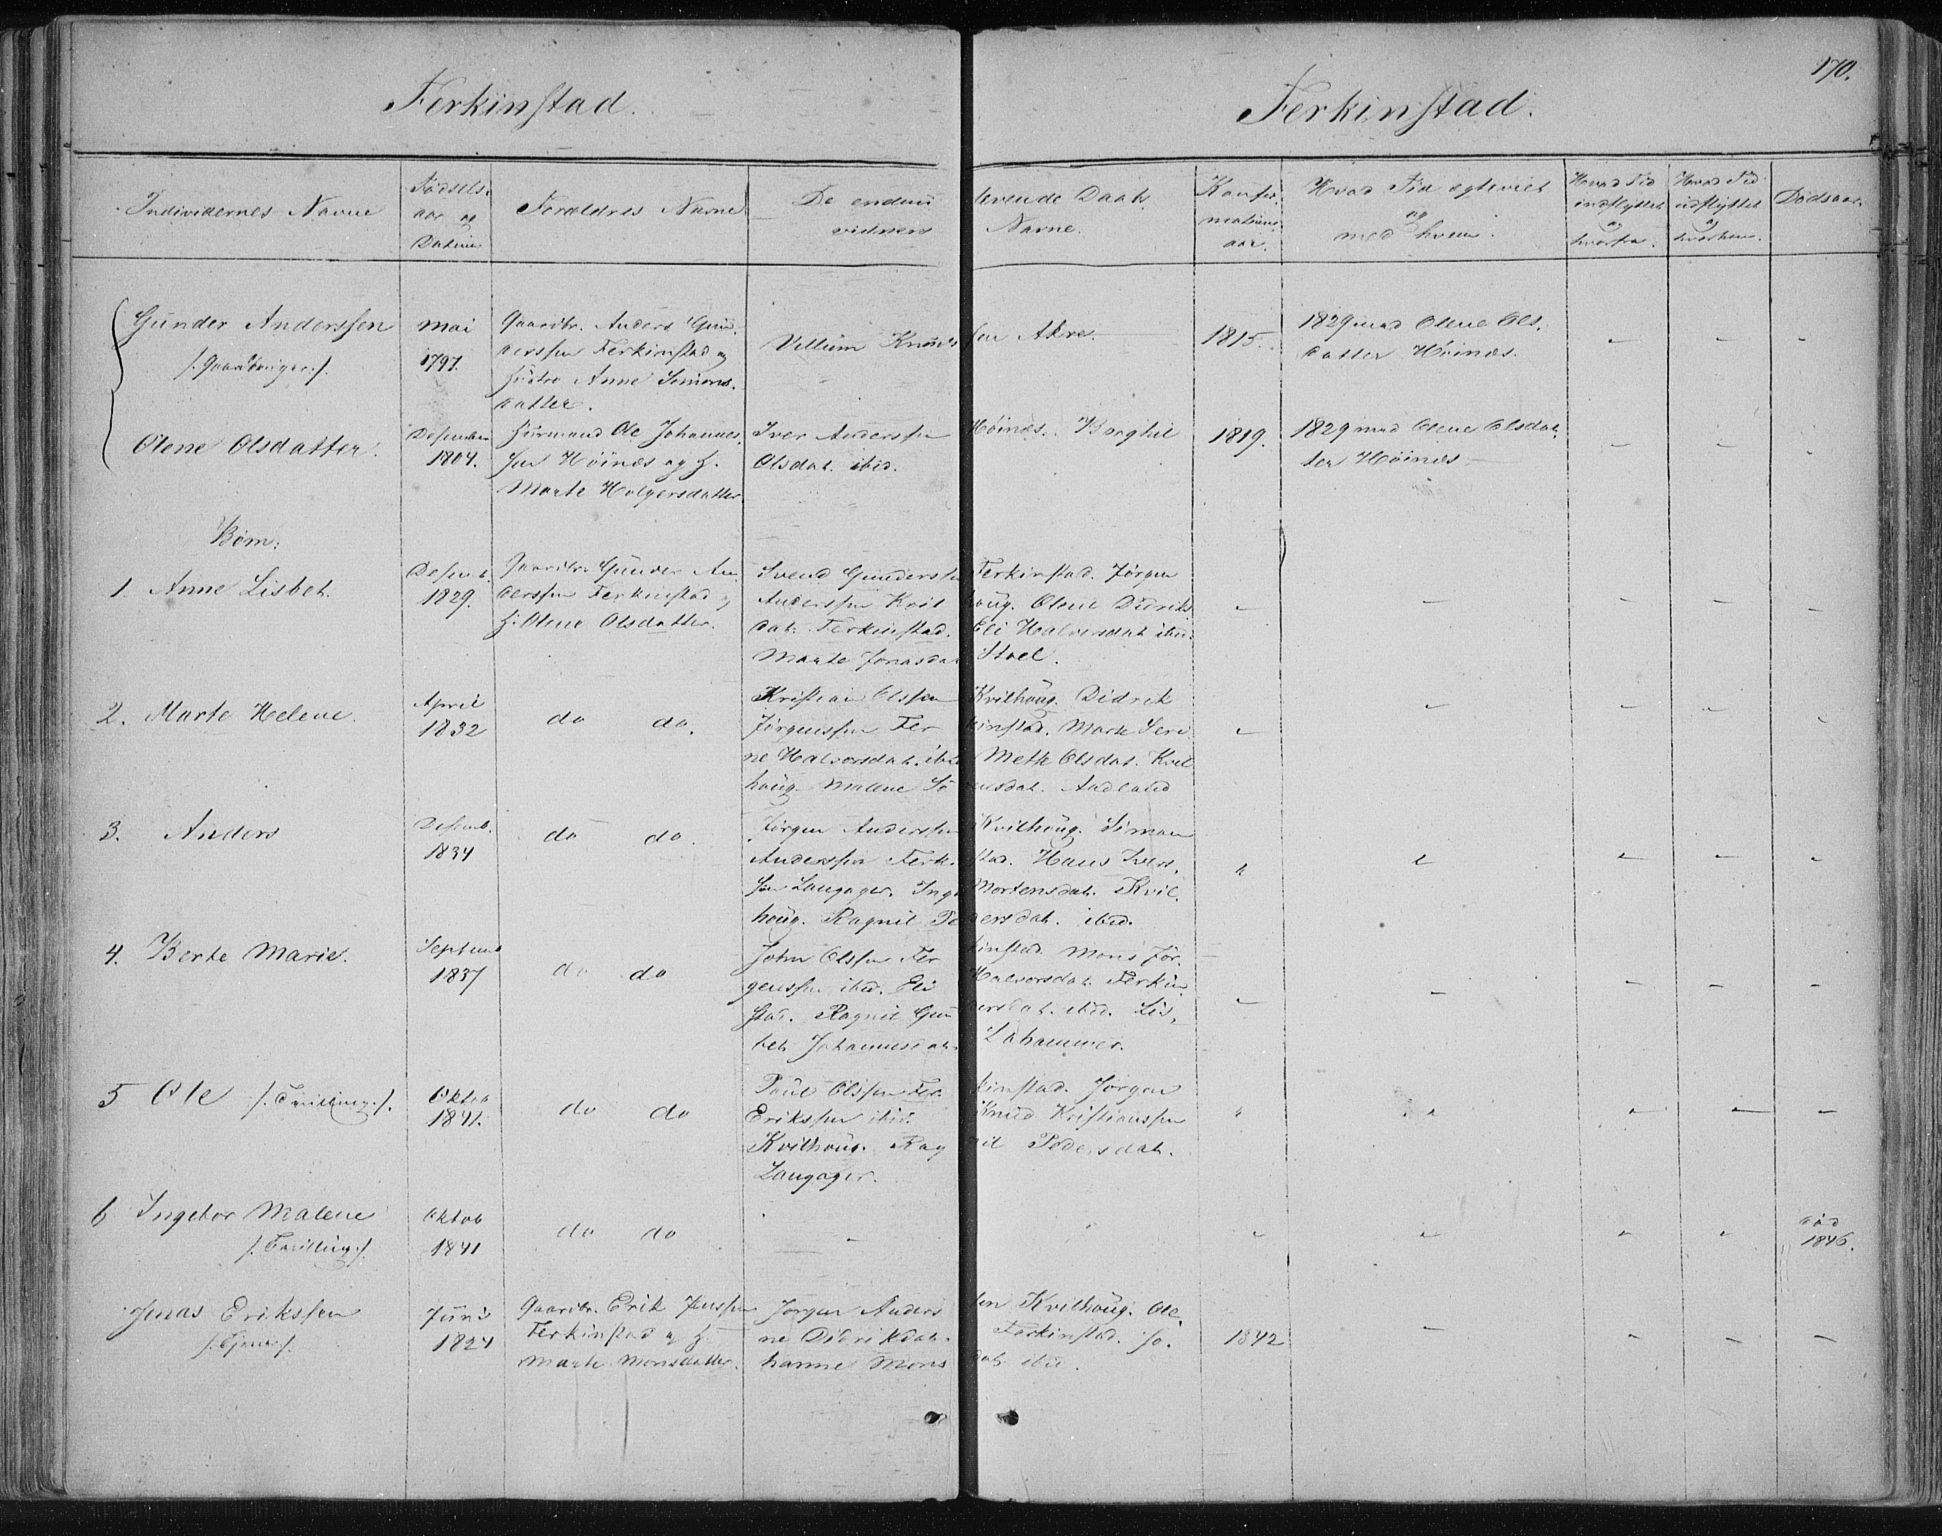 170.
Ferkinstad. Ferkinstad.
Individernes Navne
Fødsels-
aar og
Datum
Forældres Navne
De endnu levende Daab-
vidners Navne.
Konfir-
mations
aar.
Hvad Tid egteviet
og
med hvem.
Hvad Tid
indflyttet
og
hvorfra.
Hvad Tid
udflyttet
og
hvorhen.
Dødsaar.
Gunder Anderssen
/: Gaardbruger :/.
Mai
1797.
Gaardbr. Anders Gun-
derssen Ferkinstad og
Hustro Anne Simons-
datter.
Villum Knuds sen Akre.
1815.
1829 med Olene Ols-
datter Høinæs.
Olene Olsdatter.
Desember
1804.
Huusmand Ole Johannes-
sen Høinæs og H.
Marte Holgersdatter
Iver Anderssen Høinæs. Borghil
Olsdat. ibid.
1819.
1829 med Olene Olsdat-
ter Høinæs
Børn:
1. Anne Lisbet.
Desemb.
1829.
Gaardbr. Gunder An-
derssen Ferkinstad og
H. Olene Olsdatter.
Svend Gunderssen Ferkinstad. Jørgen
Anderssen Kvilhoug. Olene Didriks
dat. Ferkinstad. Eli Halvorsdat ibid.
Marte Jonasdat Stoel.
2. Marte Helene.
April
1832
do do.
Kristian Olssen Kvilhoug. Didrik
Jørgenssen Ferkinstad. Marte Seri
ne Halvorsdat. ibid Mette Olsdat. Kvil
houg. Malene Sørensdat. Aadland
3. Anders
Desemb.
1834
do do.
Jørgen Anderssen Kvilhoug. Simon
Anderssen Ferk.stad. Hans Ivers-
sen Langager. Inga Mortensdat. Kvil-
houg. Ragnil Pedersdat. ibid.
4. Berte Marie.
Septemb
1837
do do
John Olssen Ferkinstad. Mons Jør-
genssen ibid. Eli Halvorsdat. Ferkin-
stad. Ragnil Gundersdat. ibid. Lis-
bet Johannesdat. Lahammer.
5 Ole /: Tvilling :/.
Oktob
1841.
do do
Poul Olssen Ferkinstad. Jørgen
Erikssen ibid. Knud Kristianssen
Kvilhoug. Ragnil Pedersdat.
Langager.
6 Ingebor Malene
/: Tvilling :/.
Oktob
1841
do do
død
1846.
Jonas Erikssen
/: Tjener :/.
Juni
1824
Gaardbr. Erik Jenssen
Ferkinstad og H.
Marte Monsdatter.
Jørgen Anderssen Kvilhoug. Ole-
ne Didriksdat. Ferkinstad. Jo-
hanne Monsdat ibid.
1842